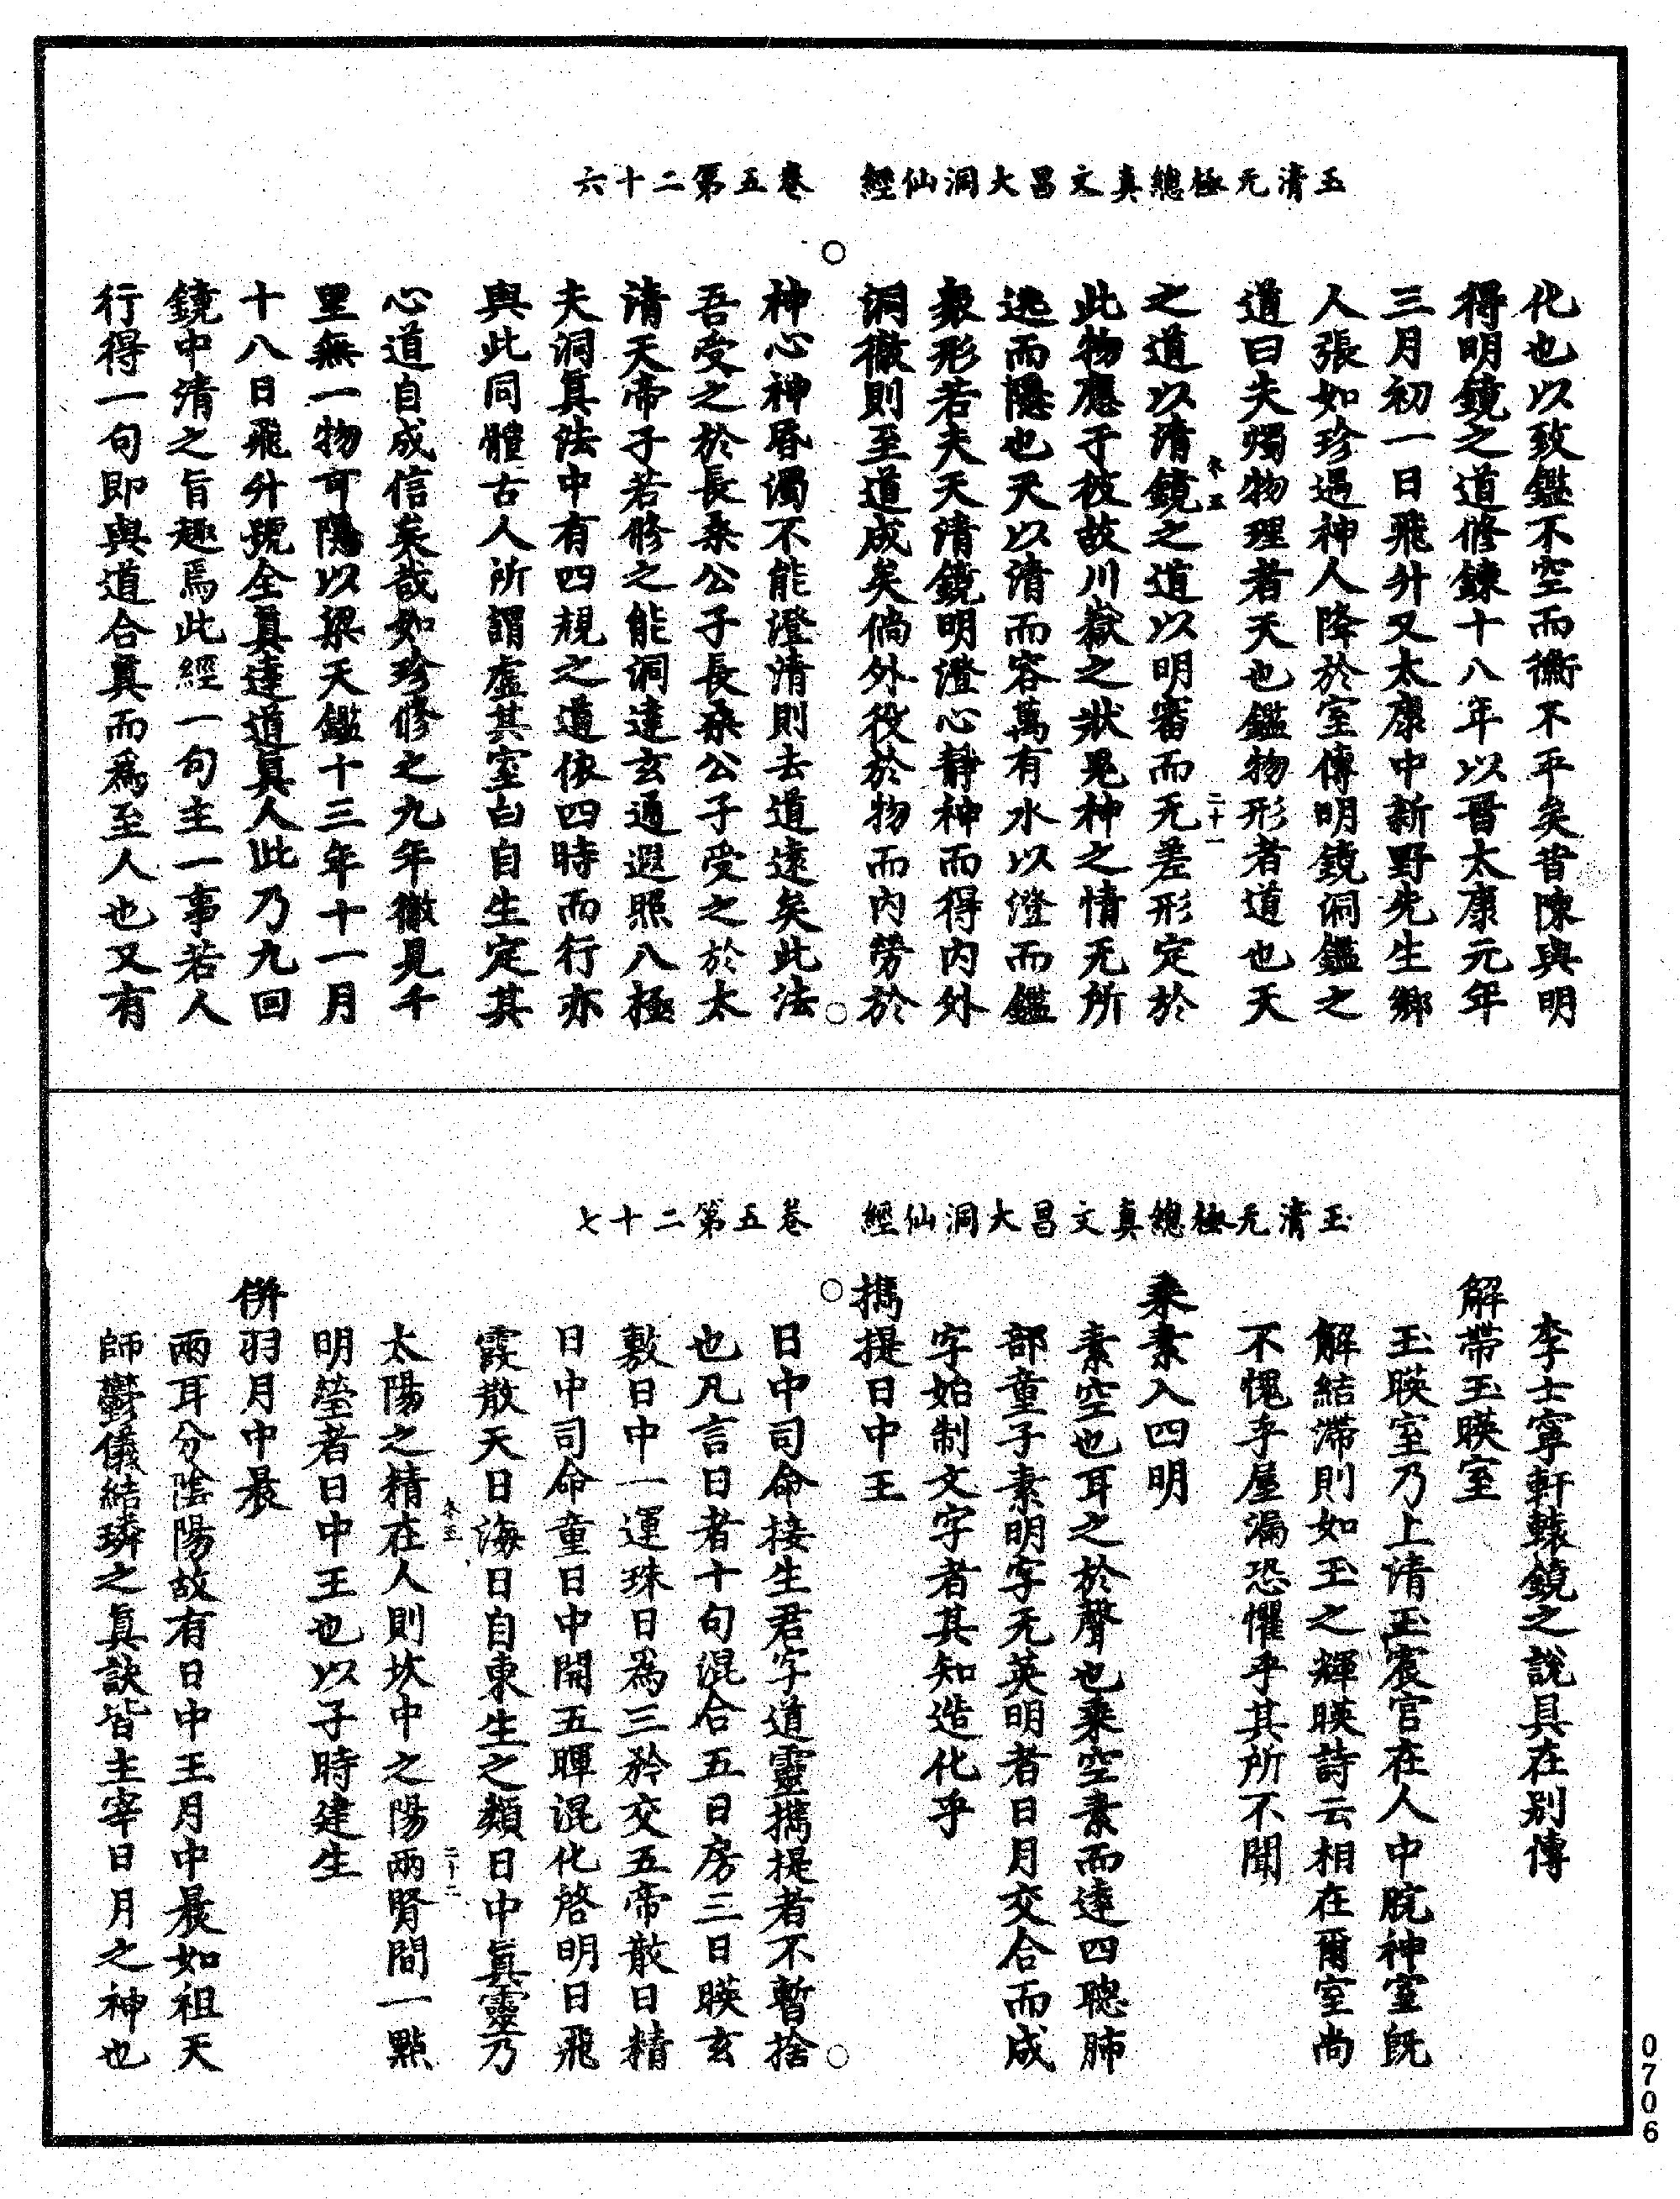 玉清无極總真文昌大洞仙經　卷五第二十六
化也以致鑑不空而衡不平矣昔陳與明
得明鏡之道修鍊十八年以晋太康元年
三月初一日飛升又太康中新野先生鄉
人張如珍遇神人降於室傳明鏡洞鑑之
道曰夫燭物理者天也鑑物形者道也天
之道以清鏡之道以明審而无差形定於
此物應于彼故川嶽之狀鬼神之情无所
逃而隱也天以清而容萬有水以澄而鑑
衆形若夫天清鏡明澄心靜神而得內外
洞徹則至道成矣倘外役於物而內勞於
神心神昏濁不能澄清則去道遠矣此法
吾受之於長桑公子長桑公子受之於太
清天帝子若修之能洞達玄通遐照八極
夫洞真法中有四規之道依四時而行亦
與此同體古人所謂虛其室白自生定其
心道自成信矣哉如珍修之九年徹見千
里無一物可隱以梁天鑑十三年十一月
十八日飛升號全真達道真人此乃九回
鏡中清之旨趣焉此經一句主一事若人
行得一句即與道合真而為至人也又有
玉清无極總真文昌大洞仙經　卷五第二十七
李士寧軒轅鏡之說具在別傳
解帶玉暎室
玉暎室乃上清玉宸官在人中脘神室既
解結滯則如玉之輝暎詩云相在爾室尚
不愧乎屋漏恐懼乎其所不聞
乘素入四明
素空也耳之於聲也乘空素而達四聰肺
部童子素明字无英明者日月交合而成
字始制文字者其知造化乎
攜提日中王
日中司命接生君字道靈攜提者不暫捨
也凡言日者十句混合五日房三日暎玄
敷日中一運珠日為三矜交五帝散日精
日中司命童日中開五暉混化啓明日飛
霞散天日海日自東生之類日中真靈乃
太陽之精在人則坎中之陽兩腎間一點
明瑩者日中王也以子時建生
併羽月中晨
兩耳分陰陽故有日中王月中晨如祖天
師鬱儀結璘之真訣皆主宰日月之神也
二十一
二十二
0706